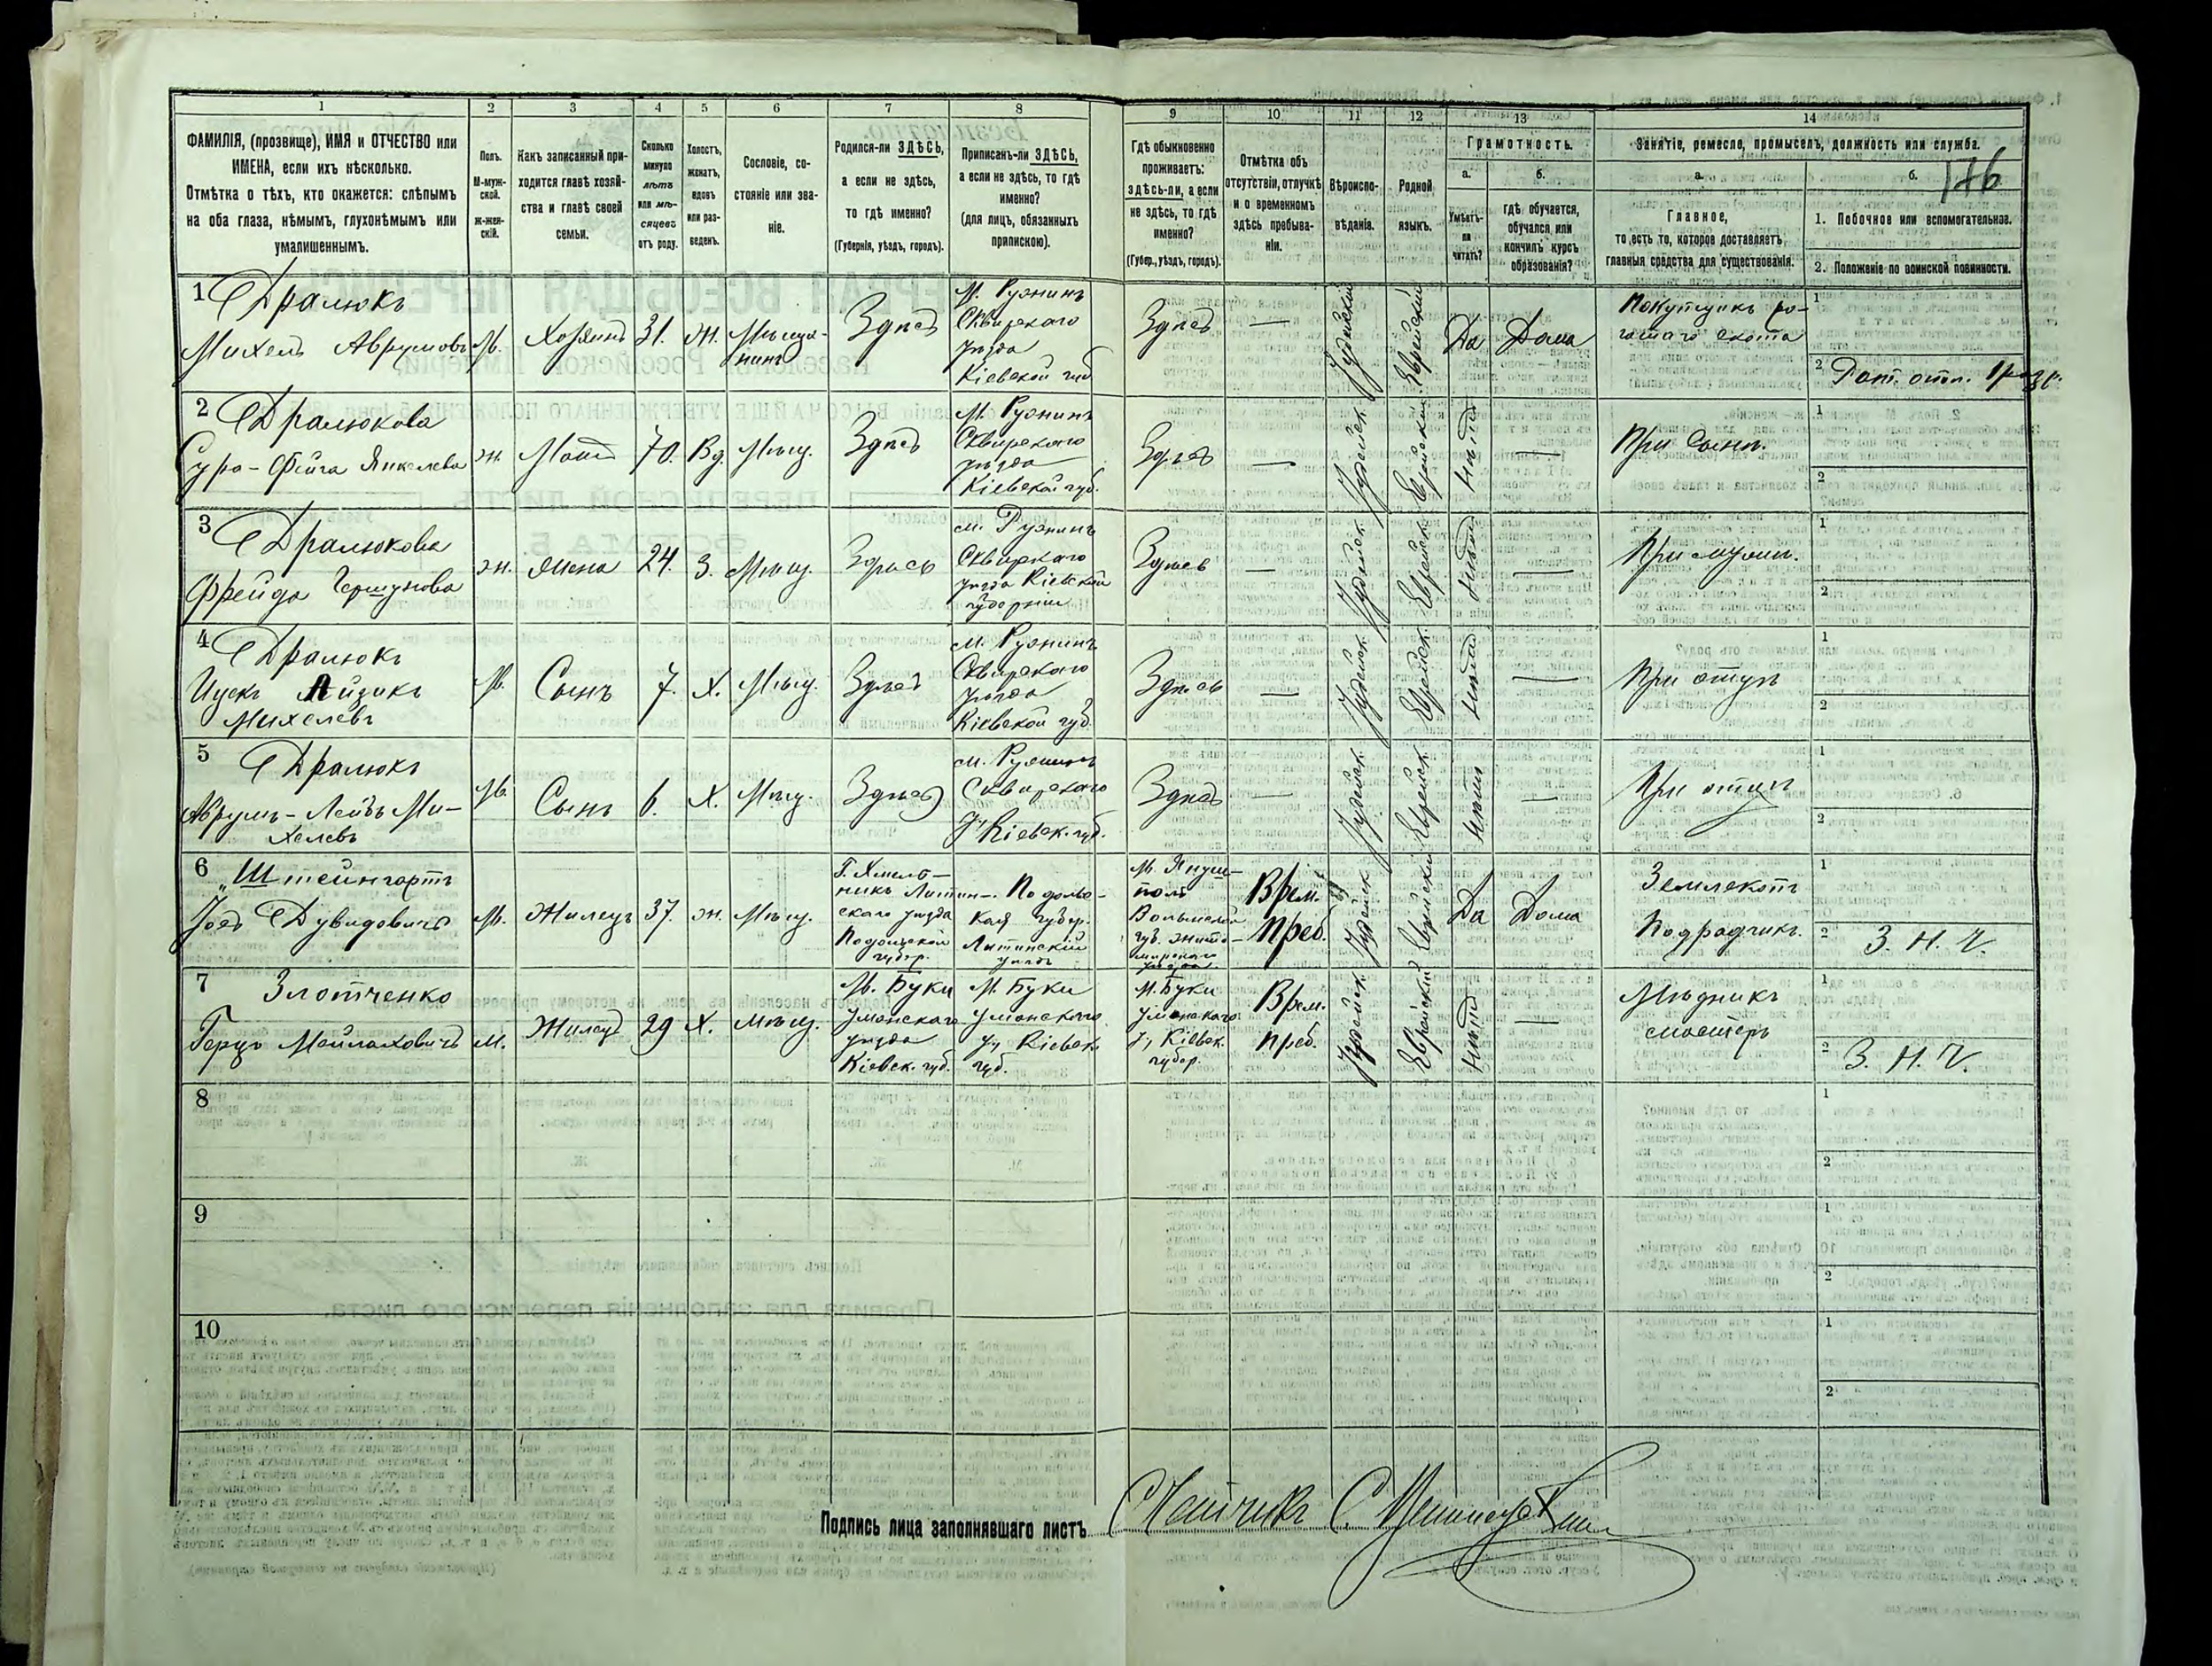 1 2 3 4 5 6 7 8 9 10 11 12 13 14
ФАМИЛІЯ, (прозвище), ИМЯ и ОТЧЕСТВО или
ИМЕНА, если ихъ нѣсколько.
Отмѣтка о тѣхъ, кто окажется: слѣпымъ
на оба глаза, нѣмымъ, глухонѣмымъ или
умалишеннымъ.
Полъ.
М-муж-
ской.
ж-жен-
скій.
Какъ записанный при-
ходится главѣ хозяй-
ства и главѣ своей
семьи.
Сколько
минуло
лѣтъ
или мѣ-
сяцевъ
отъ роду.
Холостъ,
женатъ,
вдовъ
или раз-
веденъ.
Сословіе, со-
стояніе или зва-
ніе.
Родился-ли ЗДѢСЬ,
а если не здѣсь,
то гдѣ именно?
(Губернія, уѣздъ, городъ).
Приписанъ-ли ЗДѢСЬ,
а если не здѣсь, то гдѣ
именно?
(для лицъ, обязанныхъ
припискою).
Гдѣ обыкновенно
проживаетъ:
здѣсь-ли, а если
не здѣсь, то гдѣ
именно?
(Губер., уѣздъ, городъ).
Отмѣтка объ
отсутствіи, отлучкѣ
и о временномъ
здѣсь пребыва-
ніи.
Вѣроиспо-
вѣданіе.
Родной
языкъ.
Грамотность.
а.
Умѣетъ-
ли
читать?
б.
гдѣ обучается,
обучался или
кончилъ курсъ
образованія?
Занятіе, ремесло, промыселъ, должность или служба.
а.
Главное,
то есть то, которое доставляетъ
главныя средства для существованія.
б. 176
1. Побочное или вспомогательное.
2. Положеніе по воинской повинности.
1 Дралюкъ
Михель Аврумовъ
М. Хозяинъ 31. ж. Мѣща-
нинъ
Здѣсь
М. Ружинъ
Сквирскаго
уѣзда
Кіевской губ
Здѣсь — Іудейскій Еврейскій Да Дома
Покупщикъ ро-
гатаго скота
1
2 Рат. опол. 1 разр.
2 Дралюкова
Сура-Фейга Янкелева
ж. Мать 70. Вд. Мѣщ. Здѣсь
М. Ружинъ
Сквирскаго
уѣзда
Кіевской губ.
Здѣсь — Іудейск. Еврейскій нѣтъ —
При сынѣ.
1
2
3 Дралюкова
Фрейда Гершунова
ж. Жена 24. З. Мѣщ. Здѣсь
м. Ружинъ
Сквирскаго
уѣзда Кіевской
губерніи
Здѣсь — Іудейск. Еврейск. нѣтъ —
При мужѣ.
1
2
4 Дралюкъ
Ицекъ Айзикъ
Михелевъ
М. Сынъ 7. Х. Мѣщ. Здѣсь
м. Ружинъ
Сквирскаго
уѣзда
Кіевской губ.
Здѣсь — Іудейск. Еврейск. нѣтъ —
При отцѣ
1
2
5 Дралюкъ
Аврумъ-Лейбъ Ми-
хелевъ
М. Сынъ 6. Х. Мѣщ. Здѣсь
м. Ружинъ
Сквирскаго
у. Кіевск. губ.
Здѣсь — Іудейск. Еврейск. нѣтъ —
При отцѣ
1
2
6 Штейнгартъ
Іось Дувидовичъ
М. Жилецъ 37. ж. Мѣщ.
Г. Хмель-
никъ Литин-
скаго уѣзда
Подольской
губер.
Подольс-
кая губер.
Литинскій
уѣздъ
М. Януш-
поль
Волынской
губ. Жито-
мирскаго
уѣзда
Врем.
Преб.
Іудейск. Еврейскій Да Дома
Землекопъ
Подрядчикъ.
1
2 З. Н. Ч.
7 Злотченко
Герцъ Мейлаховичъ
М. Жилецъ 29 Х. Мѣщ.
М. Буки
Уманскаго
уѣзда
Кіевск. губ.
М. Буки
Уманскаго
у. Кіевск.
губ.
М. Буки
Уманскаго
у. Кіевск.
губер.
Врем.
преб.
Іудейск. Еврейскій нѣтъ —
Мѣдникъ
мастеръ
1
2 З. Н. Ч.
8
1
2
9
1
2
10
1
2
Подпись лица заполнявшаго листъ Счетчикъ С.